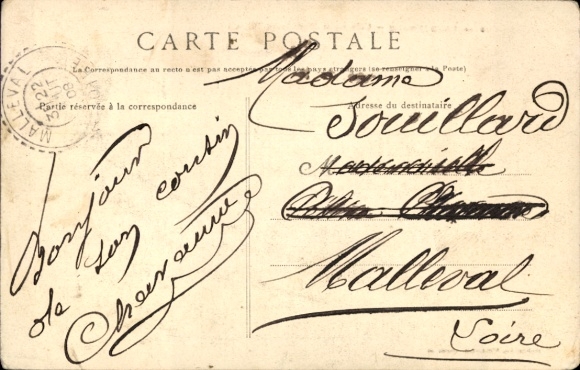 CARTE POSTALE
La Correspondance au recto n'est pas acceptée par tous les pays étrangers (se renseigner à la Poste)
Partie réservée à la correspondance
Adresse du destinataire
MALLEVAL
22
08
Bonjour
de son cousin
Chavanne
Madame
Souillard
Mademoiselle
Malleval
Loire